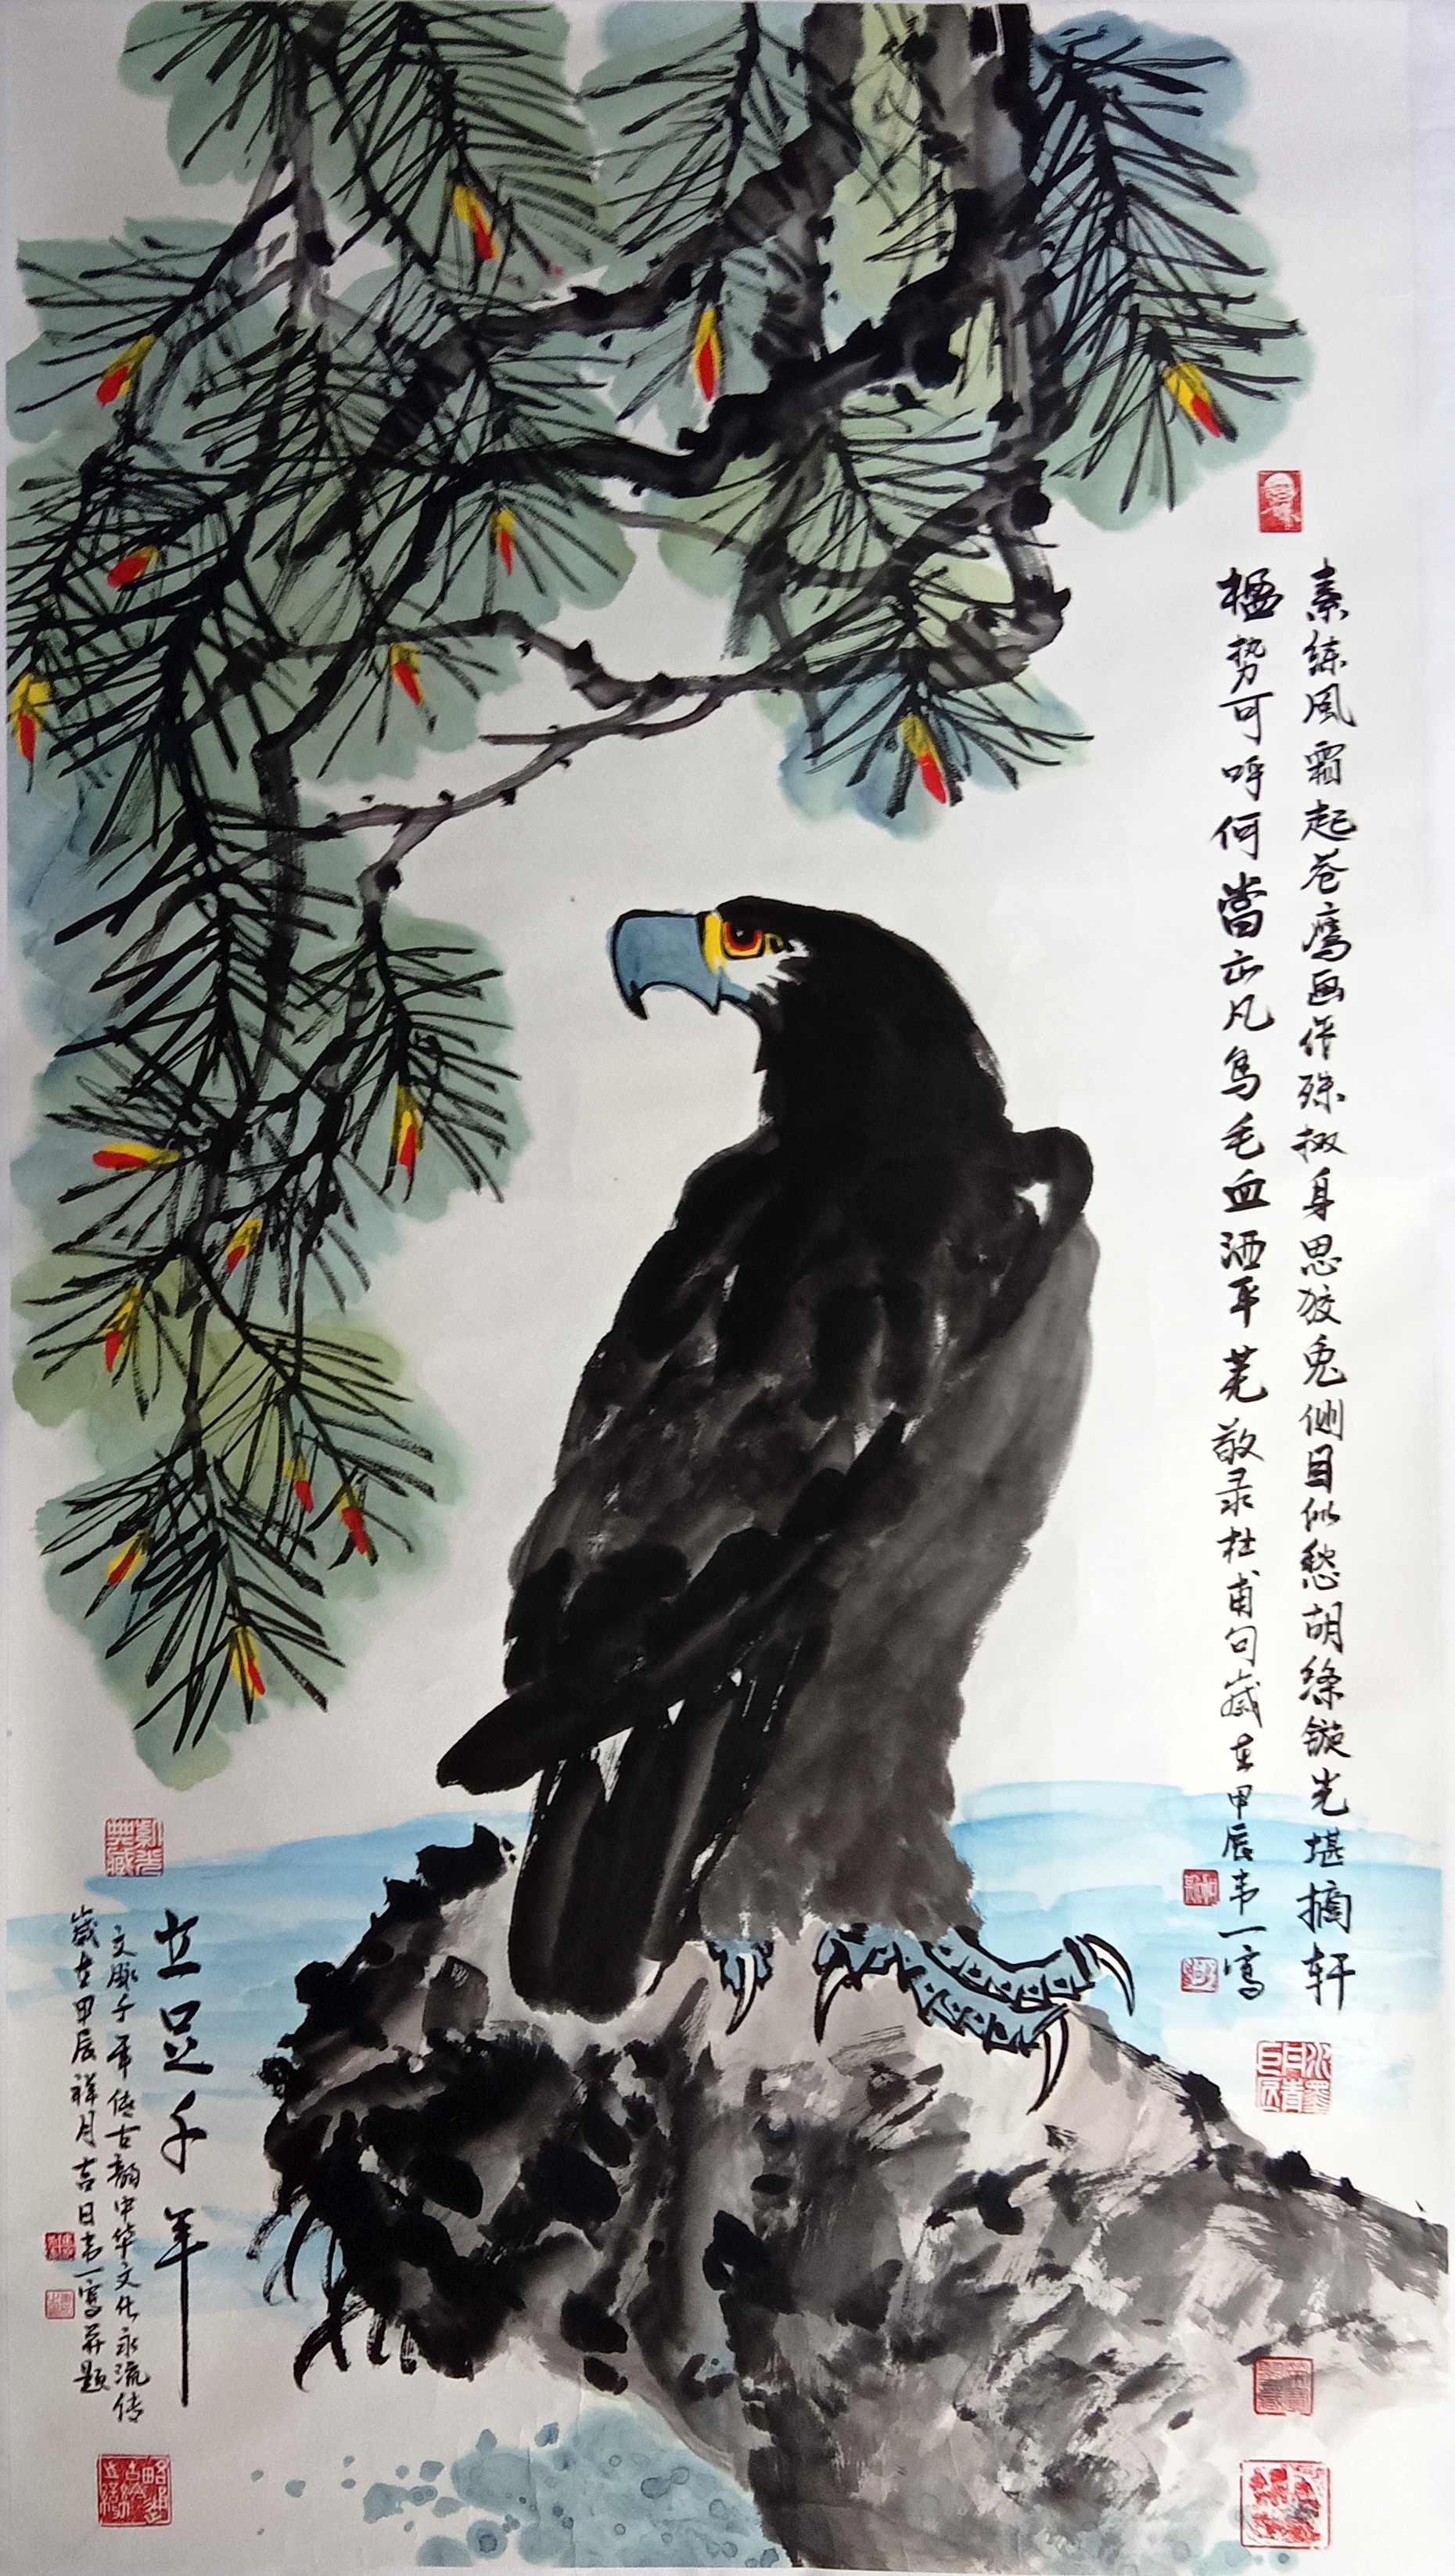 素练風霜起苍鹰画作殊㧐身思狡兔侧目似愁胡绦镟光堪摘轩
楹势可呼何當击凡鸟毛血洒平芜敬录杜甫句嵗在甲辰韦一寫
立足千年
文脉千年传古韵中华文化永流传
嵗在甲辰祥月吉日韦一寫并题